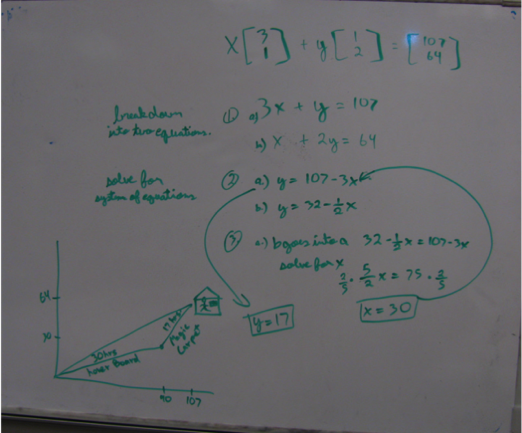 x[3 1] + y[1 2] = [107 64]
breakdown
into two equations.
① a) 3x + y = 107
b) x + 2y = 64
solve for
system of equations
② a) y = 107-3x
b) y = 32-½x
③ a) b goes into a 32-½x = 107-3x
solve for x
2/5 · 5/2 x = 75 · 2/5
y=17
x = 30
64
30
17 hrs
Magic
Carpet
30 hrs
hover Board
90 107